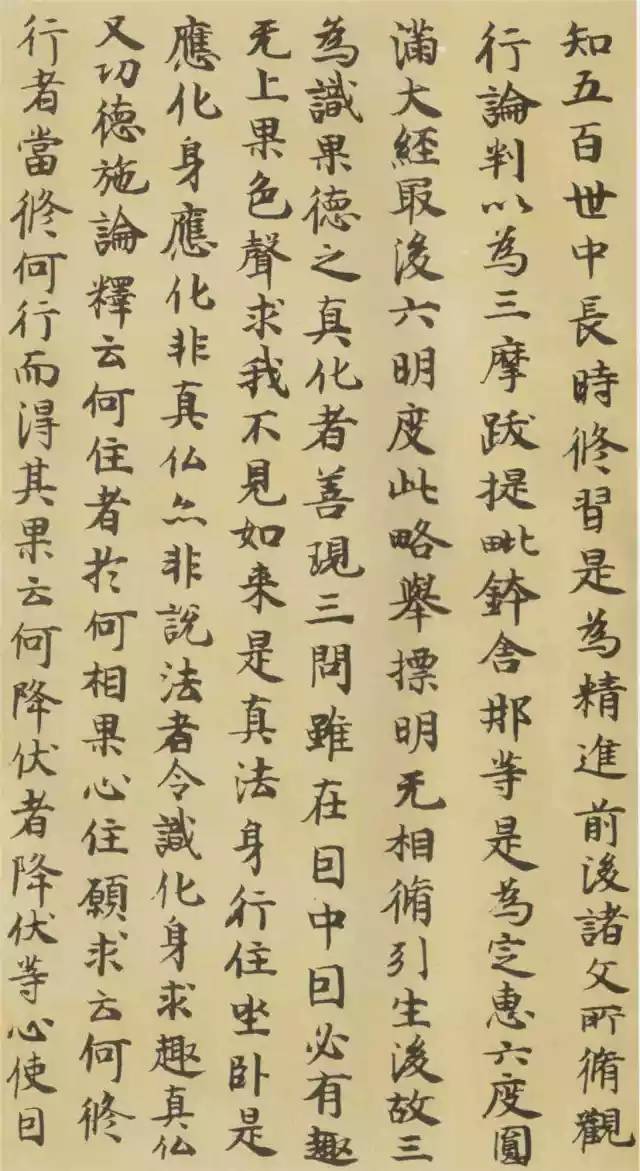 知五百世中長時修習是為精進前後諸文所脩觀
行論判以為三摩跋提毗鉢舍那等是為定惠六度圓
滿大經冣後六明度此略舉摽明无相脩引生後故三
為識果德之真化者善現三問雖在囙中囙必有趣
无上果色聲求我不見如来是真法身行住坐卧是
應化身應化非真仏亦非說法者令識化身求趣真仏
又功德施論釋云何住者於何相果心住願求云何修
行者當修何行而得其果云何降伏者降伏等心使囙